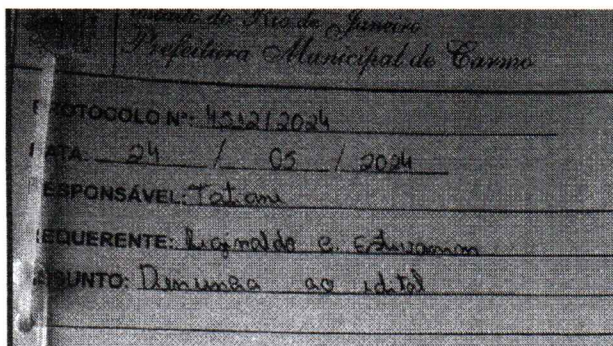 Estado do Rio de Janeiro
Prefeitura Municipal de Carmo
PROTOCOLO Nº: 4512/2024
DATA: 24 / 05 / 2024
RESPONSÁVEL: Tatiane
REQUERENTE: Reginaldo C.
ASSUNTO: Denuncia ao edital